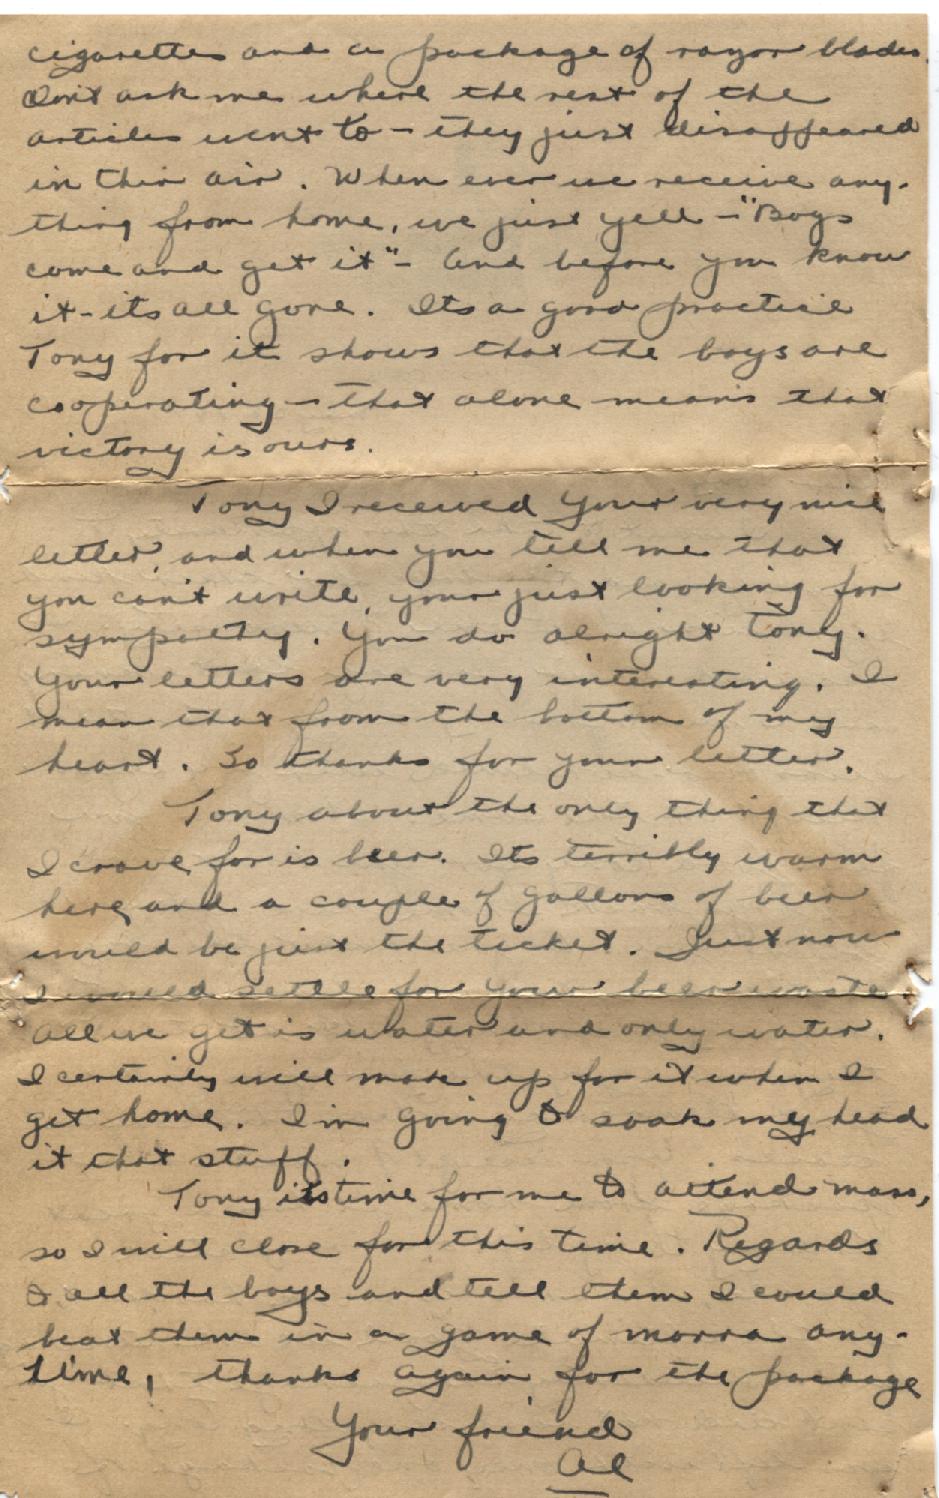 cigarettes and a package of razor blades.
Don't ask me where the rest of the
articles went to - they just disappeared
in thin air. When ever we receive any-
thing from home, we just yell - "Boys
come and get it" - and before you know
it - its all gone. Its a good practice
Tony for it shows that the boys are
cooperating - that alone means that
victory is ours.
Tony I received your very nice
letter, and when you tell me that
you can't write, your just looking for
sympathy. You do alright Tony.
Your letters are very interesting. I
mean that from the bottom of my
heart. So thanks for your letter.
Tony about the only thing that
I crave for is beer. Its terribly warm
here and a couple of gallons of beer
would be just the ticket. Just now
I would settle for your beer waste
all we get is water and only water.
I certainly will make up for it when I
get home. I'm going to soak my head
it that stuff.
Tony its time for me to attend mass,
so I will close for this time. Regards
to all the boys and tell them I could
beat them in a game of morra any-
time, thanks again for the package
Your friend
Al